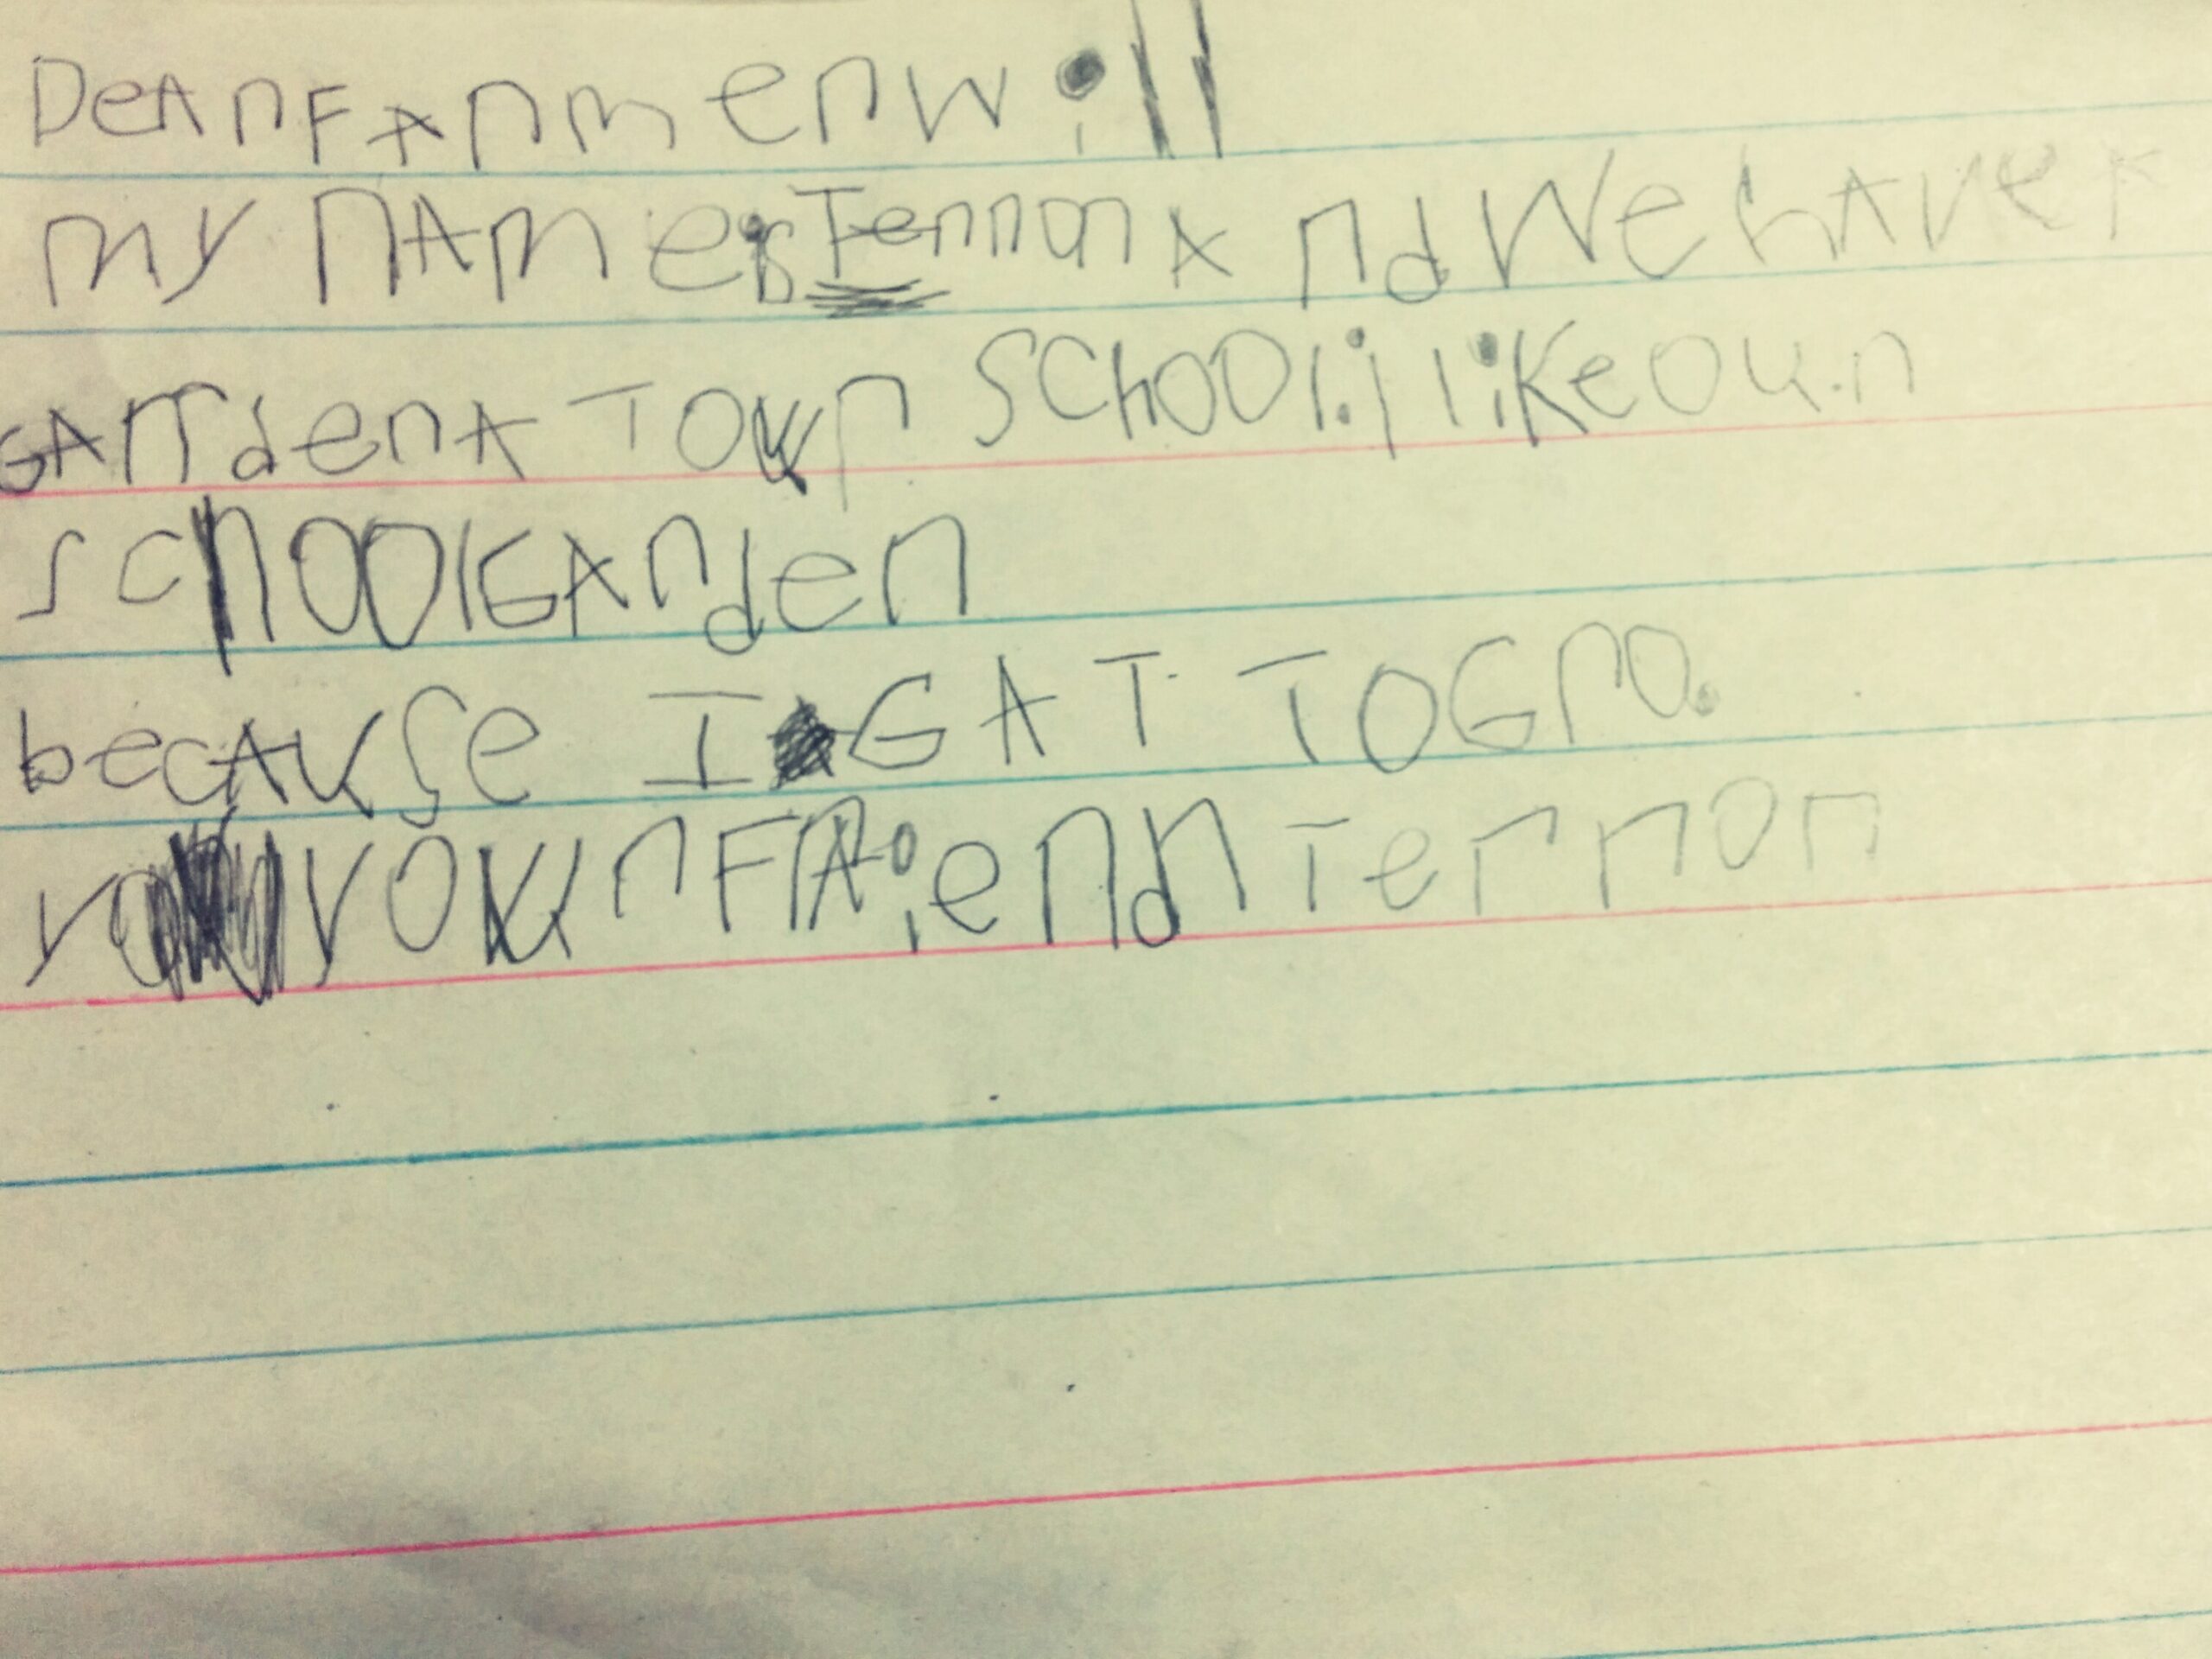 DeAr FArmer will
my NAMe is Terron And We hAve A
GArden AT Our SChOOl. i like Our
schOOl GArden
becAuse I GAT TO GrO.
yOur FRiend Terron